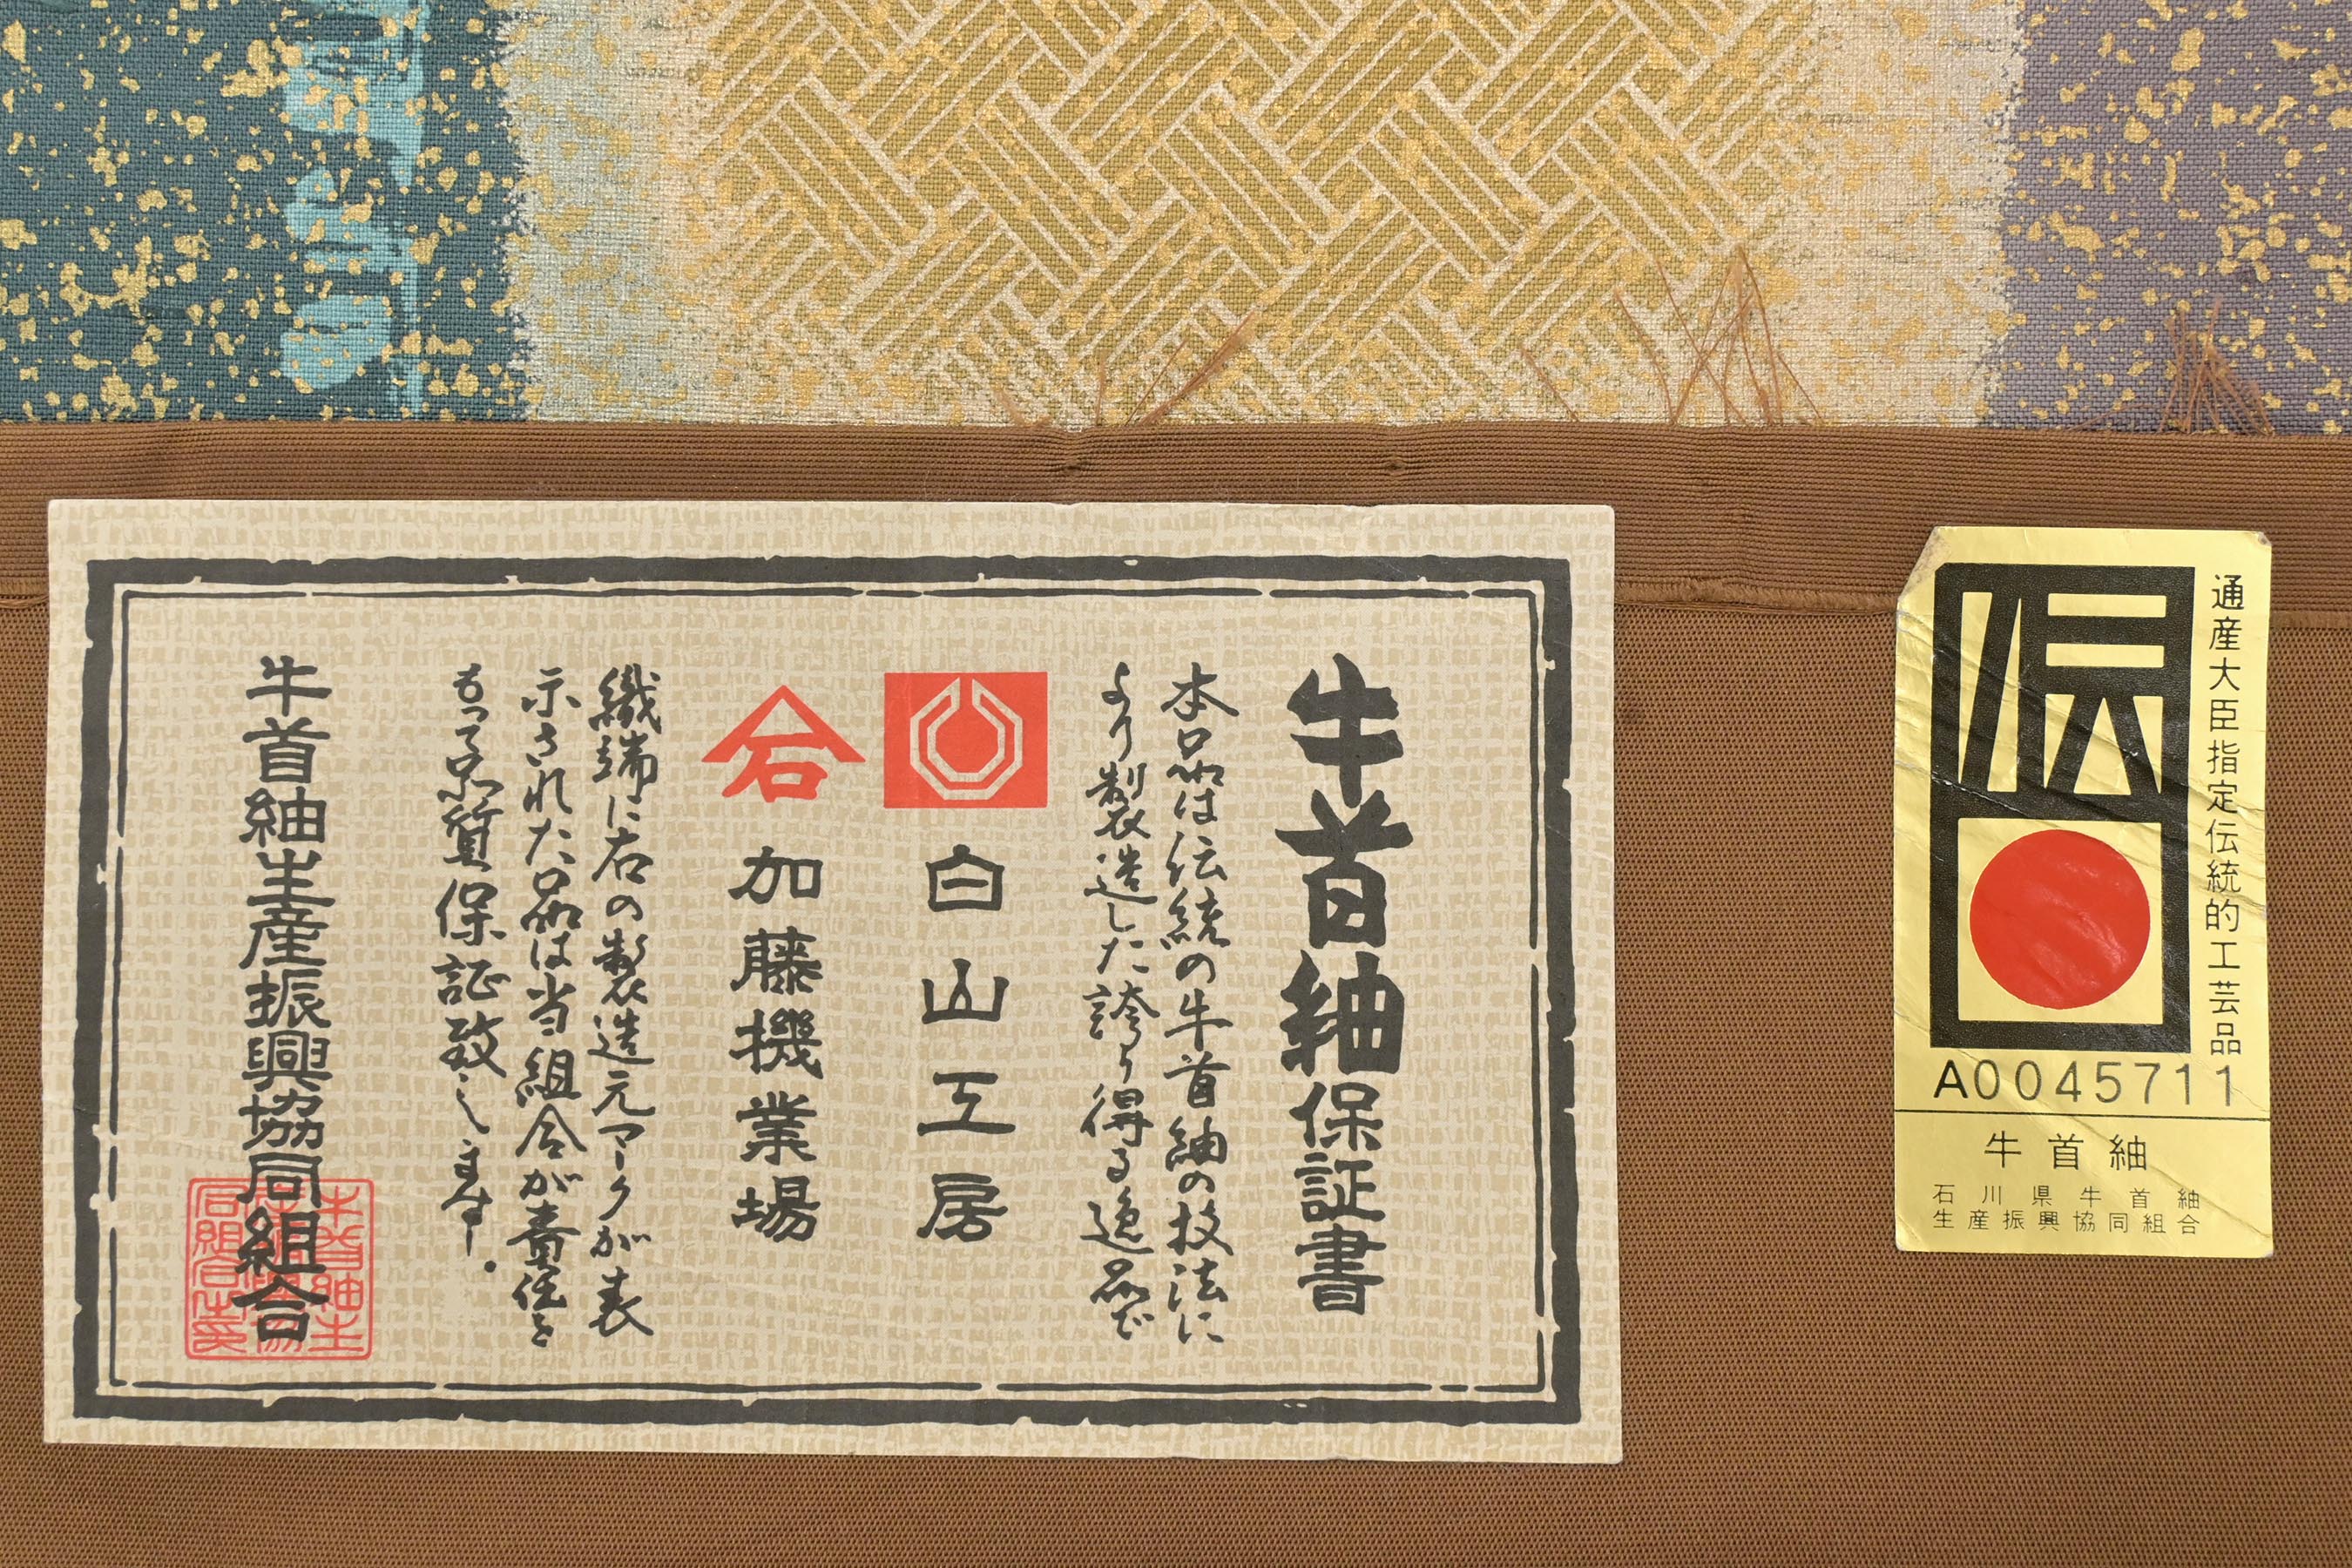 牛首紬保証書
本品は伝統の牛首紬の技法に
より製造した誇り得る逸品で
白山工房
加藤機業場
織端に右の製造元マークが表
示された品は当組合が責任を
もって品質保証致します。
牛首紬生産振興協同組合
伝
通産大臣指定伝統的工芸品
A0045711
牛首紬
石川県牛首紬
生産振興協同組合